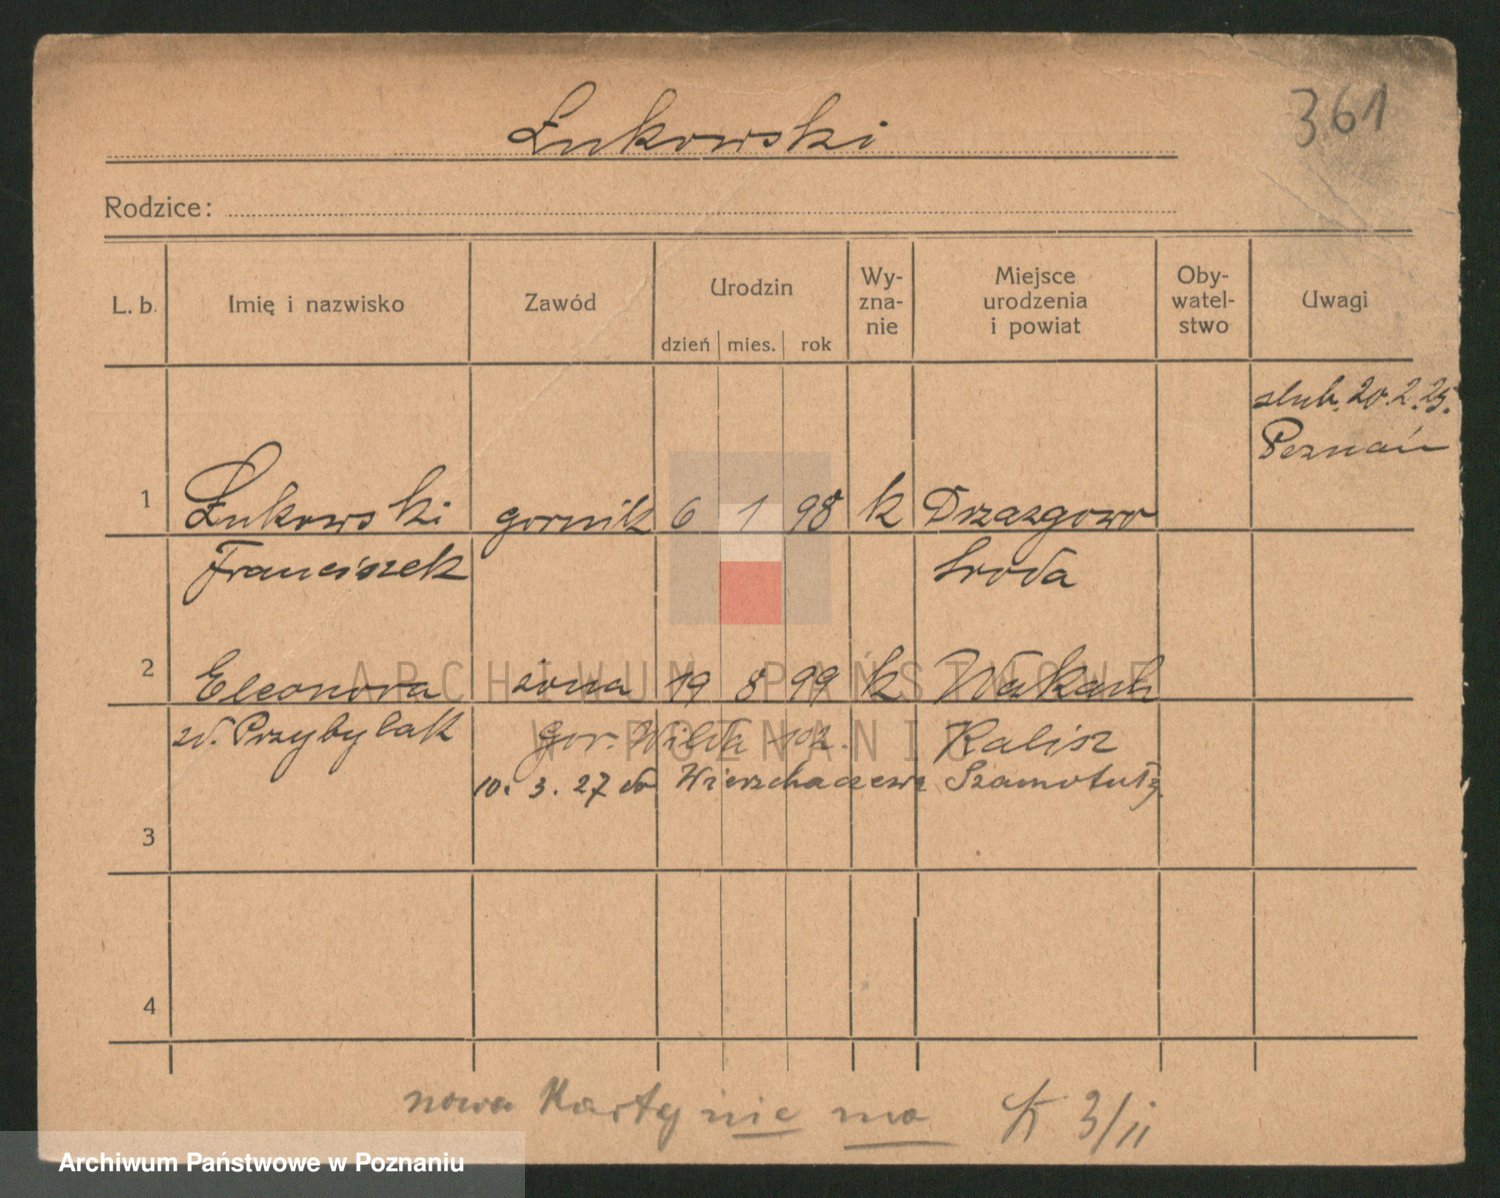 361
Łukowski
Rodzice:
L. b. Imię i nazwisko Zawód Urodzin dzień mies. rok Wy-zna-nie Miejsce urodzenia i powiat Oby-watel-stwo Uwagi
slub. 20.2.25.
Poznań
1 Łukowski gornik 6 1 98 k Drzazgowo
Franciszek Sroda
2 Eleonora żona 19 8 99 k
ARCHIWUM PAŃSTWOWE
W POZNANIU
z d. Przybylak Gor. Wilda 102. Kalisz
10. 3. 27 do Szamotuły
3
4
nowa Karty nie ma K 3/ii
Archiwum Państwowe w Poznaniu